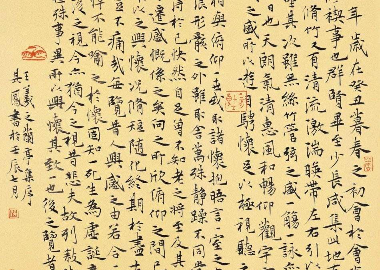 年歲在癸丑暮春之初會於會
禊事也群賢畢至少長咸集此地
脩竹又有清流激湍暎帶左右引以
坐其次雖無絲竹管弦之盛一觴一詠
日也天朗氣清惠風和暢仰觀宇
之盛所以遊目騁懷足以極視聽之
與俯仰一世或取諸懷抱晤言一室之
浪形骸之外雖取舍萬殊靜躁不同
得於己快然自足不知老之將至及其
遷感慨係之矣向之所欣俯仰之間
以之興懷況脩短隨化終期於盡古
豈不痛哉每覽昔人興感之由若合一
不能喻之於懷固知一死生為虛誕
後之視今亦猶今之視昔悲夫故列敘
殊事異所以興懷其致一也後之覽者
王羲之蘭亭集序
其鳳書於壬辰七月